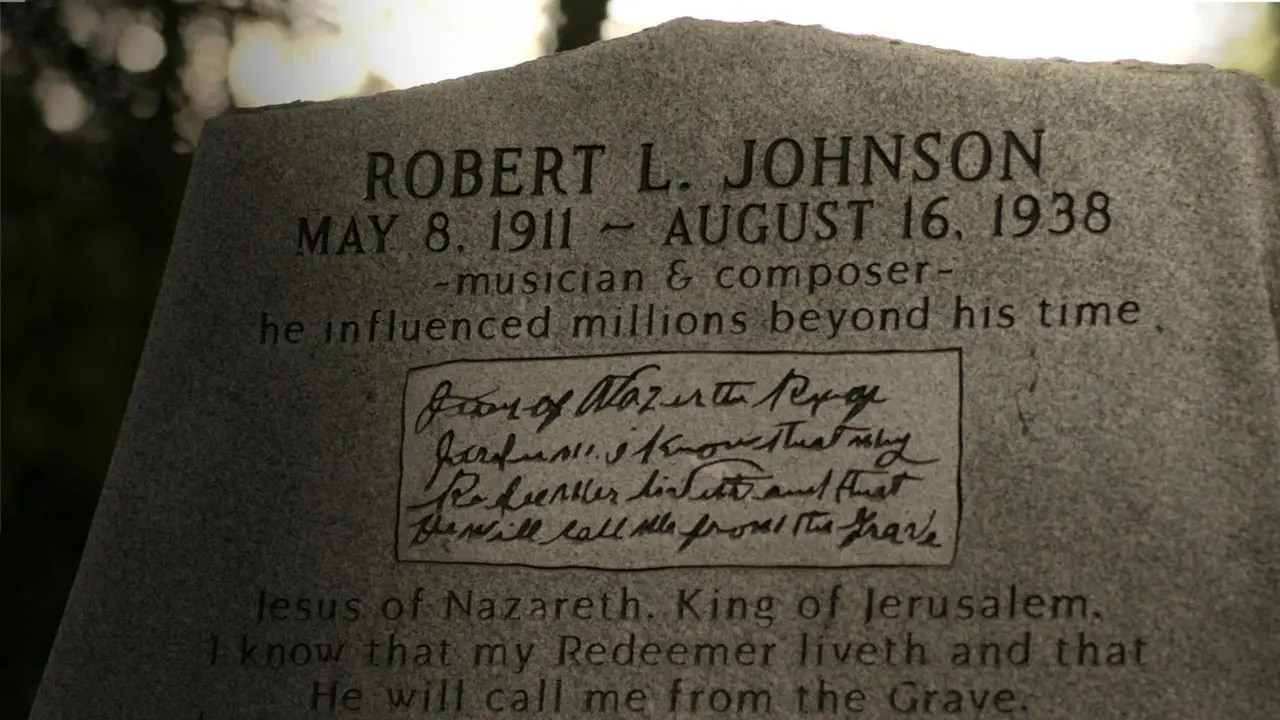 ROBERT L. JOHNSON
MAY 8, 1911 ~ AUGUST 16, 1938
-musician & composer-
he influenced millions beyond his time.
Jesus of Nazerth King of
Jerdusm. I know that my
Redeemer liveth and that
He will call me from the Grave
Jesus of Nazareth, King of Jerusalem,
I know that my Redeemer liveth and that
He will call me from the Grave.